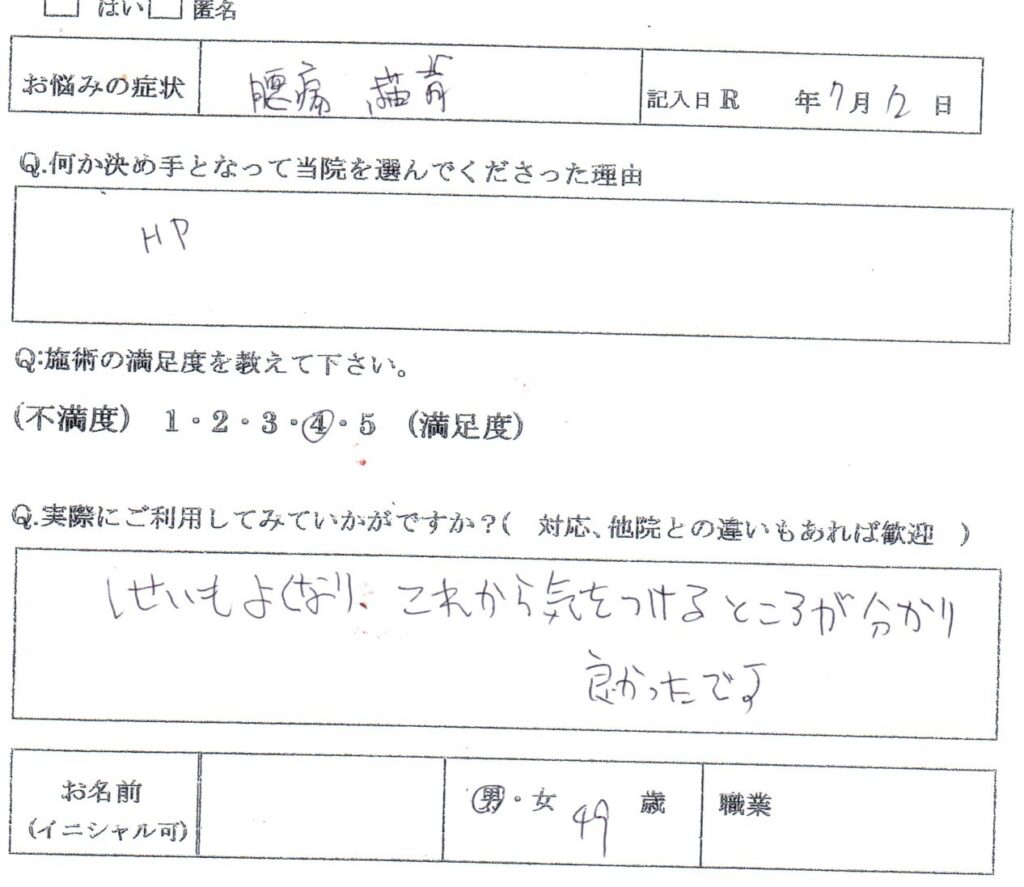 □ はい□ 匿名
お悩みの症状 腰痛 猫背 記入日R 年7月12日
Q.何か決め手となって当院を選んでくださった理由
HP
Q:施術の満足度を教えて下さい。
(不満度) 1・2・3・4・5 (満足度)
Q.実際にご利用してみていかがですか?( 対応、他院との違いもあれば歓迎 )
しせいもよくなり、これから気をつけるところが分かり
良かったです
お名前 男・女 49 歳 職業
(イニシャル可)